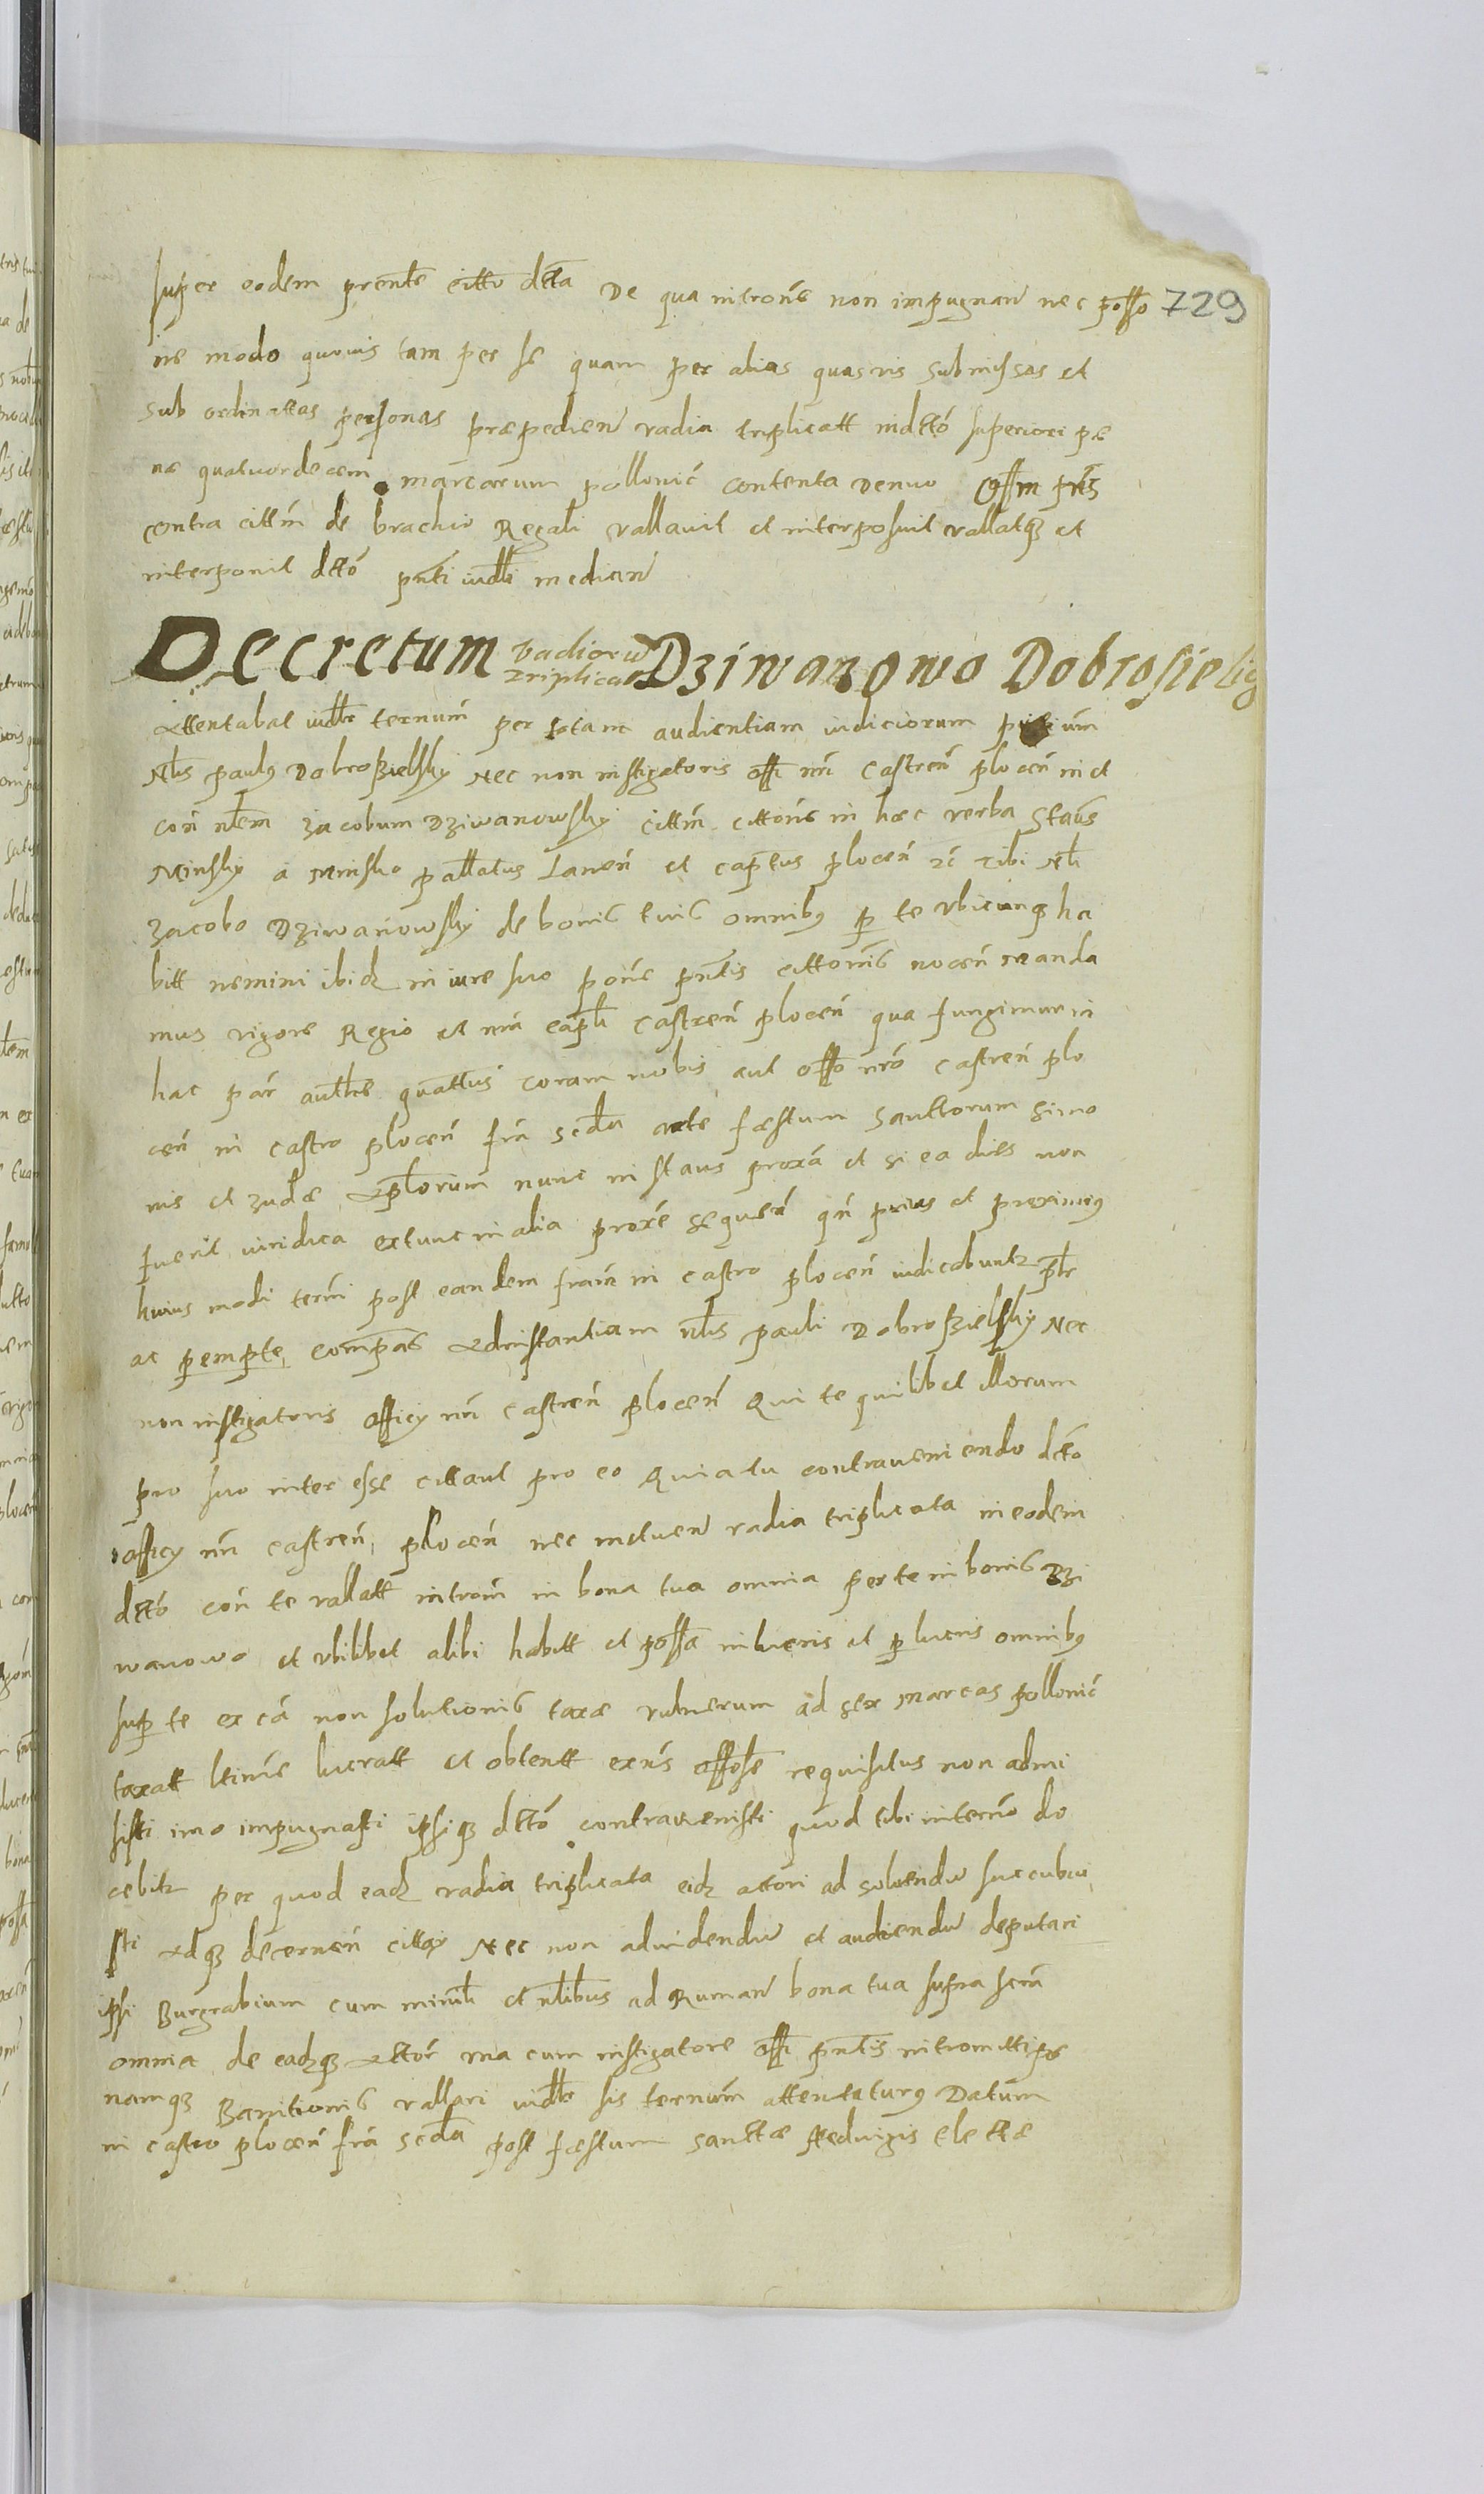 super eodem prente citto dtta De qua introne non impugnan nec posso 729
ne modo quouis tam per se quam per alias quasuis submissas et
sub ordinattas personas præpedien vadia triplicatt indttó superiori pæ
næ quatuordecem marcarum pollonic contenta denuo Offm pns
contra cittm de brachio Regali vallauit et interposuit vallatq et
interponit dttó pnti iudli median
Decretum vadioru triplicat Dziwanowo Dobrosielski
Attentabat iudlr ternum per totam audientiam iudiciorum
Nlis paulq Dobroßielsky Nec non instigatoris offi nri Castren plocen in et
con nlem Jacobum Dziwanowsky cittm cittone in hæc verba Staus
Minsky a Minsko pallatus Lancn et captus plocen zc Tibi Nli
Jacobo Dziwanowsky de bonis tuis omnibq p te vbicunq ha
bitt nemini ibidz in iure suo pone pntis cittonis nocen manda
mus rigore Regio et nra capli Castren plocen qua fungimur in
hac par authe quattus coram nobis aut offo nro castren plo
cen in castro plocen fra scda ante fæstum Santtorum Simo
nis et Judæ Aplorum nunc instans proxa et si ea dies non
fuerit iuridica extunc in alia proxe sequen qn prius et proximiq
huius modi termi post eandem fram in castro plocen iudicabuntr pblr
ac pempte compas Ad instantiam nlis pauli Dobroßielsky Nec
non instigatoris officy nri castren plocen Qui te quilibet illorum
pro suo inter esse cittant pro eo Quia tu contraueniendo dtto
officy nri castren plocen nec metuen vadia triplicata in eodem
dttó con te vallatt introm in bona tua omnia per te in bonis Dzi
wanowo et vbilibet alibi habitt et possa in lucris et p lucris omnibq
sup te ex ca non solutionis taxæ vulnerum ad sex marcas pollonic
taxatt ltime lucratt et obtentt exns offose requisitus non admi
sisti imo impugnasti ipsiq dttó contrauenisti quod tibi in terno do
cebitr per quod eadz vadia triplicata eidz attori ad soluendu succubui
sti Adq decernen cittqy Nec non ad videndu et audiendu deputari
ipsi Burgrabium cum minrli et nlibus ad Ruman bona tua supra scra
omnia de eadzq Attor vna cum instigatore offi pntis intromitti pæ
namq Banitionis vallari iudlr sis ternum attentaturq Datum
in castro plocen fra scda post fæstum Santtæ Heduigis Elettæ